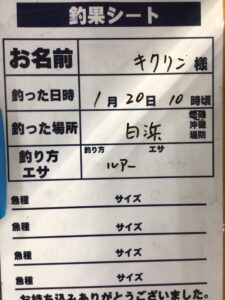 釣果シート
お名前 キクリン 様
釣った日時 1月20日10時頃
釣った場所 白浜 沖磯 堤防
釣り方 エサ 釣り方 ルアー エサ
魚種 サイズ
魚種 サイズ
魚種 サイズ
魚種 サイズ
お持ち込みありがとうございました。